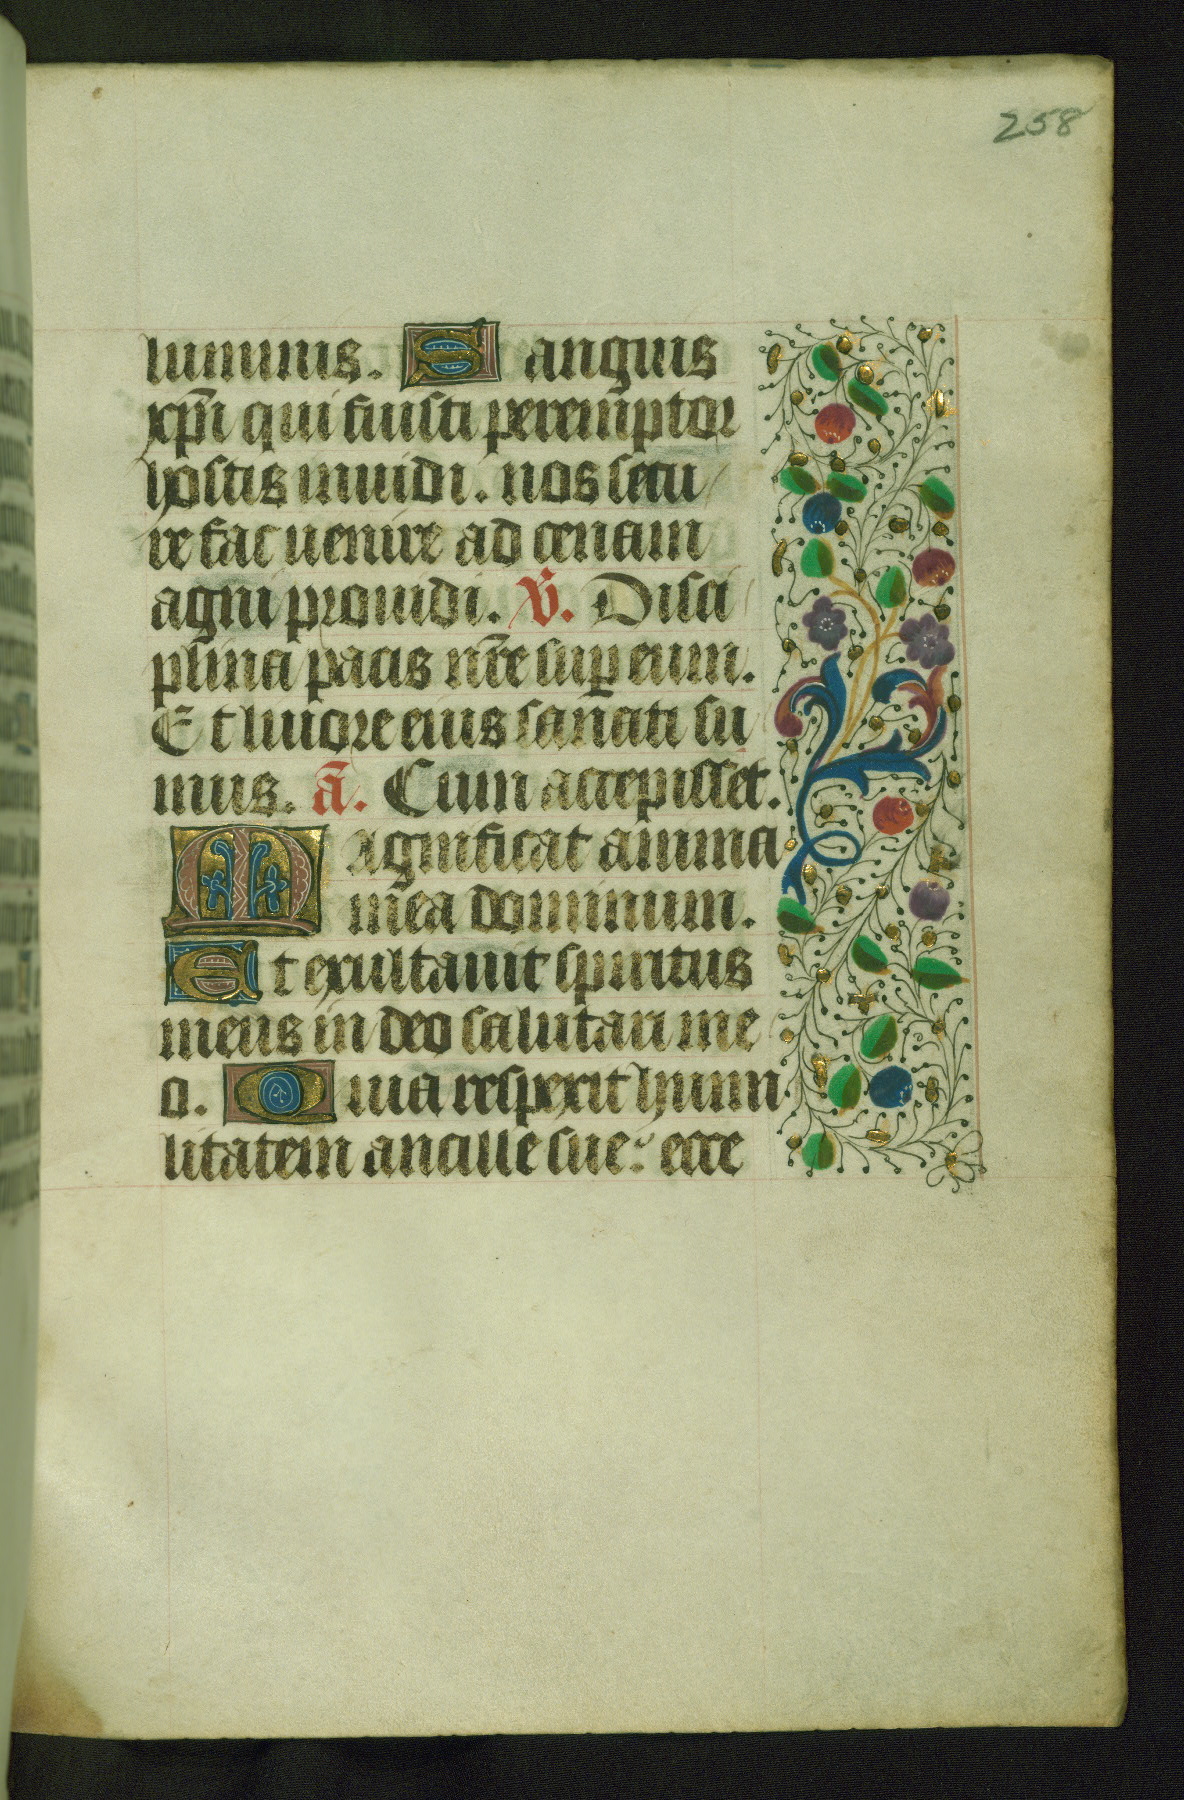 258
luminis. Sanguis
xp̄i qui fuisti peremptor
hostis inuidi. nos secu
re fac uenire ad cenam
agni prouidi. v̄. Disci
plina pacis nr̄e sup̄ eum.
Et liuore eius sanati su
mus. ā. Cum accepisset.
Magnificat anima
mea dominum.
Et exultauit spiritus
meus in deo salutari me
o. Quia respexit humi
litatem ancille sue: ecce